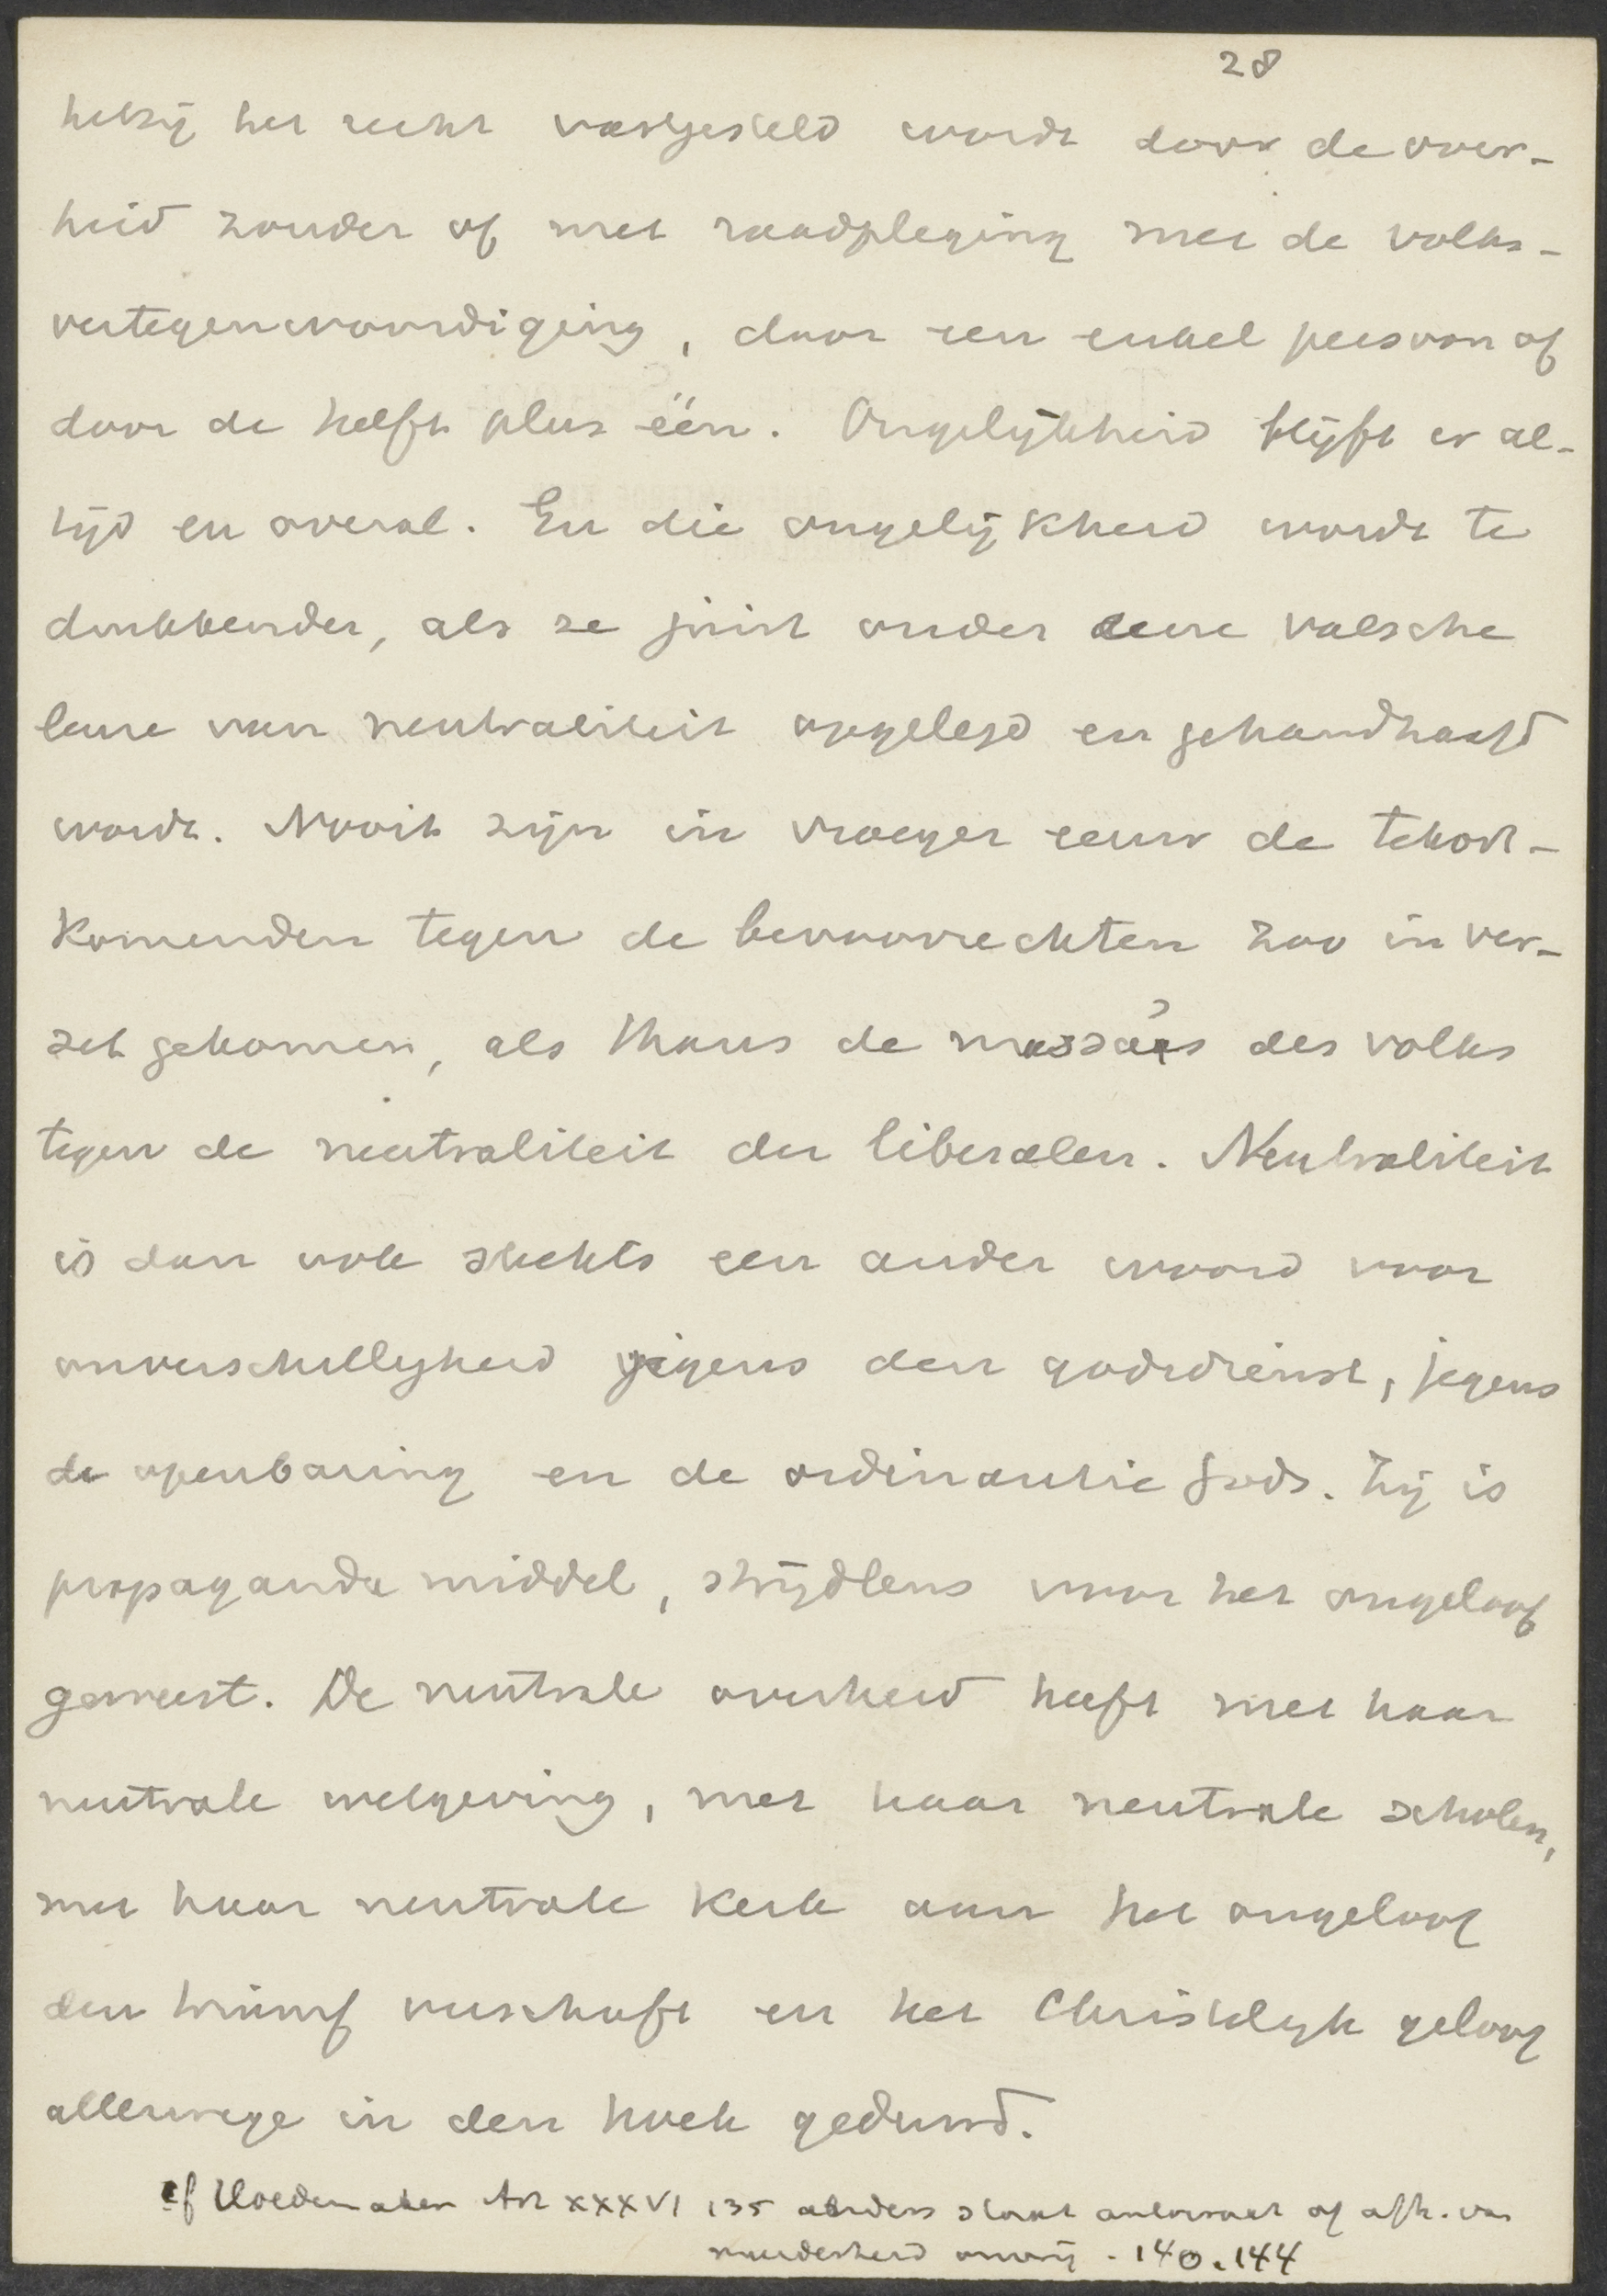 28
hetzij het recht vastgesteld wordt door de over-
heid zonder of met raadpleging met de volks-
vertegenwoordiging, door een enkel persoon of
door de helft plus één. Ongelijkheid blijft er al-
tijd en overal. En die ongelijkheid wordt te
drukkender, als ze juist onder eene valsche
leuze van neutraliteit opgelegd en gehandhaafd
wordt. Nooit zijn in vroeger eeuw de tekort-
komenden tegen de bevoorrechten zoo in ver-
zet gekomen, als thans de massa's des volks
tegen de neutraliteit der liberalen. Neutraliteit
is dan ook slechts een ander woord voor
onverschilligheid jegens den godsdienst, jegens
de openbaring en de ordinantie Gods. Zij is
propaganda middel, strijdleus voor het ongeloof
geweest. De neutrale overheid heeft met haar
neutrale wetgeving, met haar neutrale scholen,
met haar neutrale kerk aan het ongeloof
den triumf verschaft en het Christelijk geloof
allerwege in den hoek geduwd.
cf Hoedemaker Art XXXVI 135 anders staat of afh. van
meerderheid 140.144